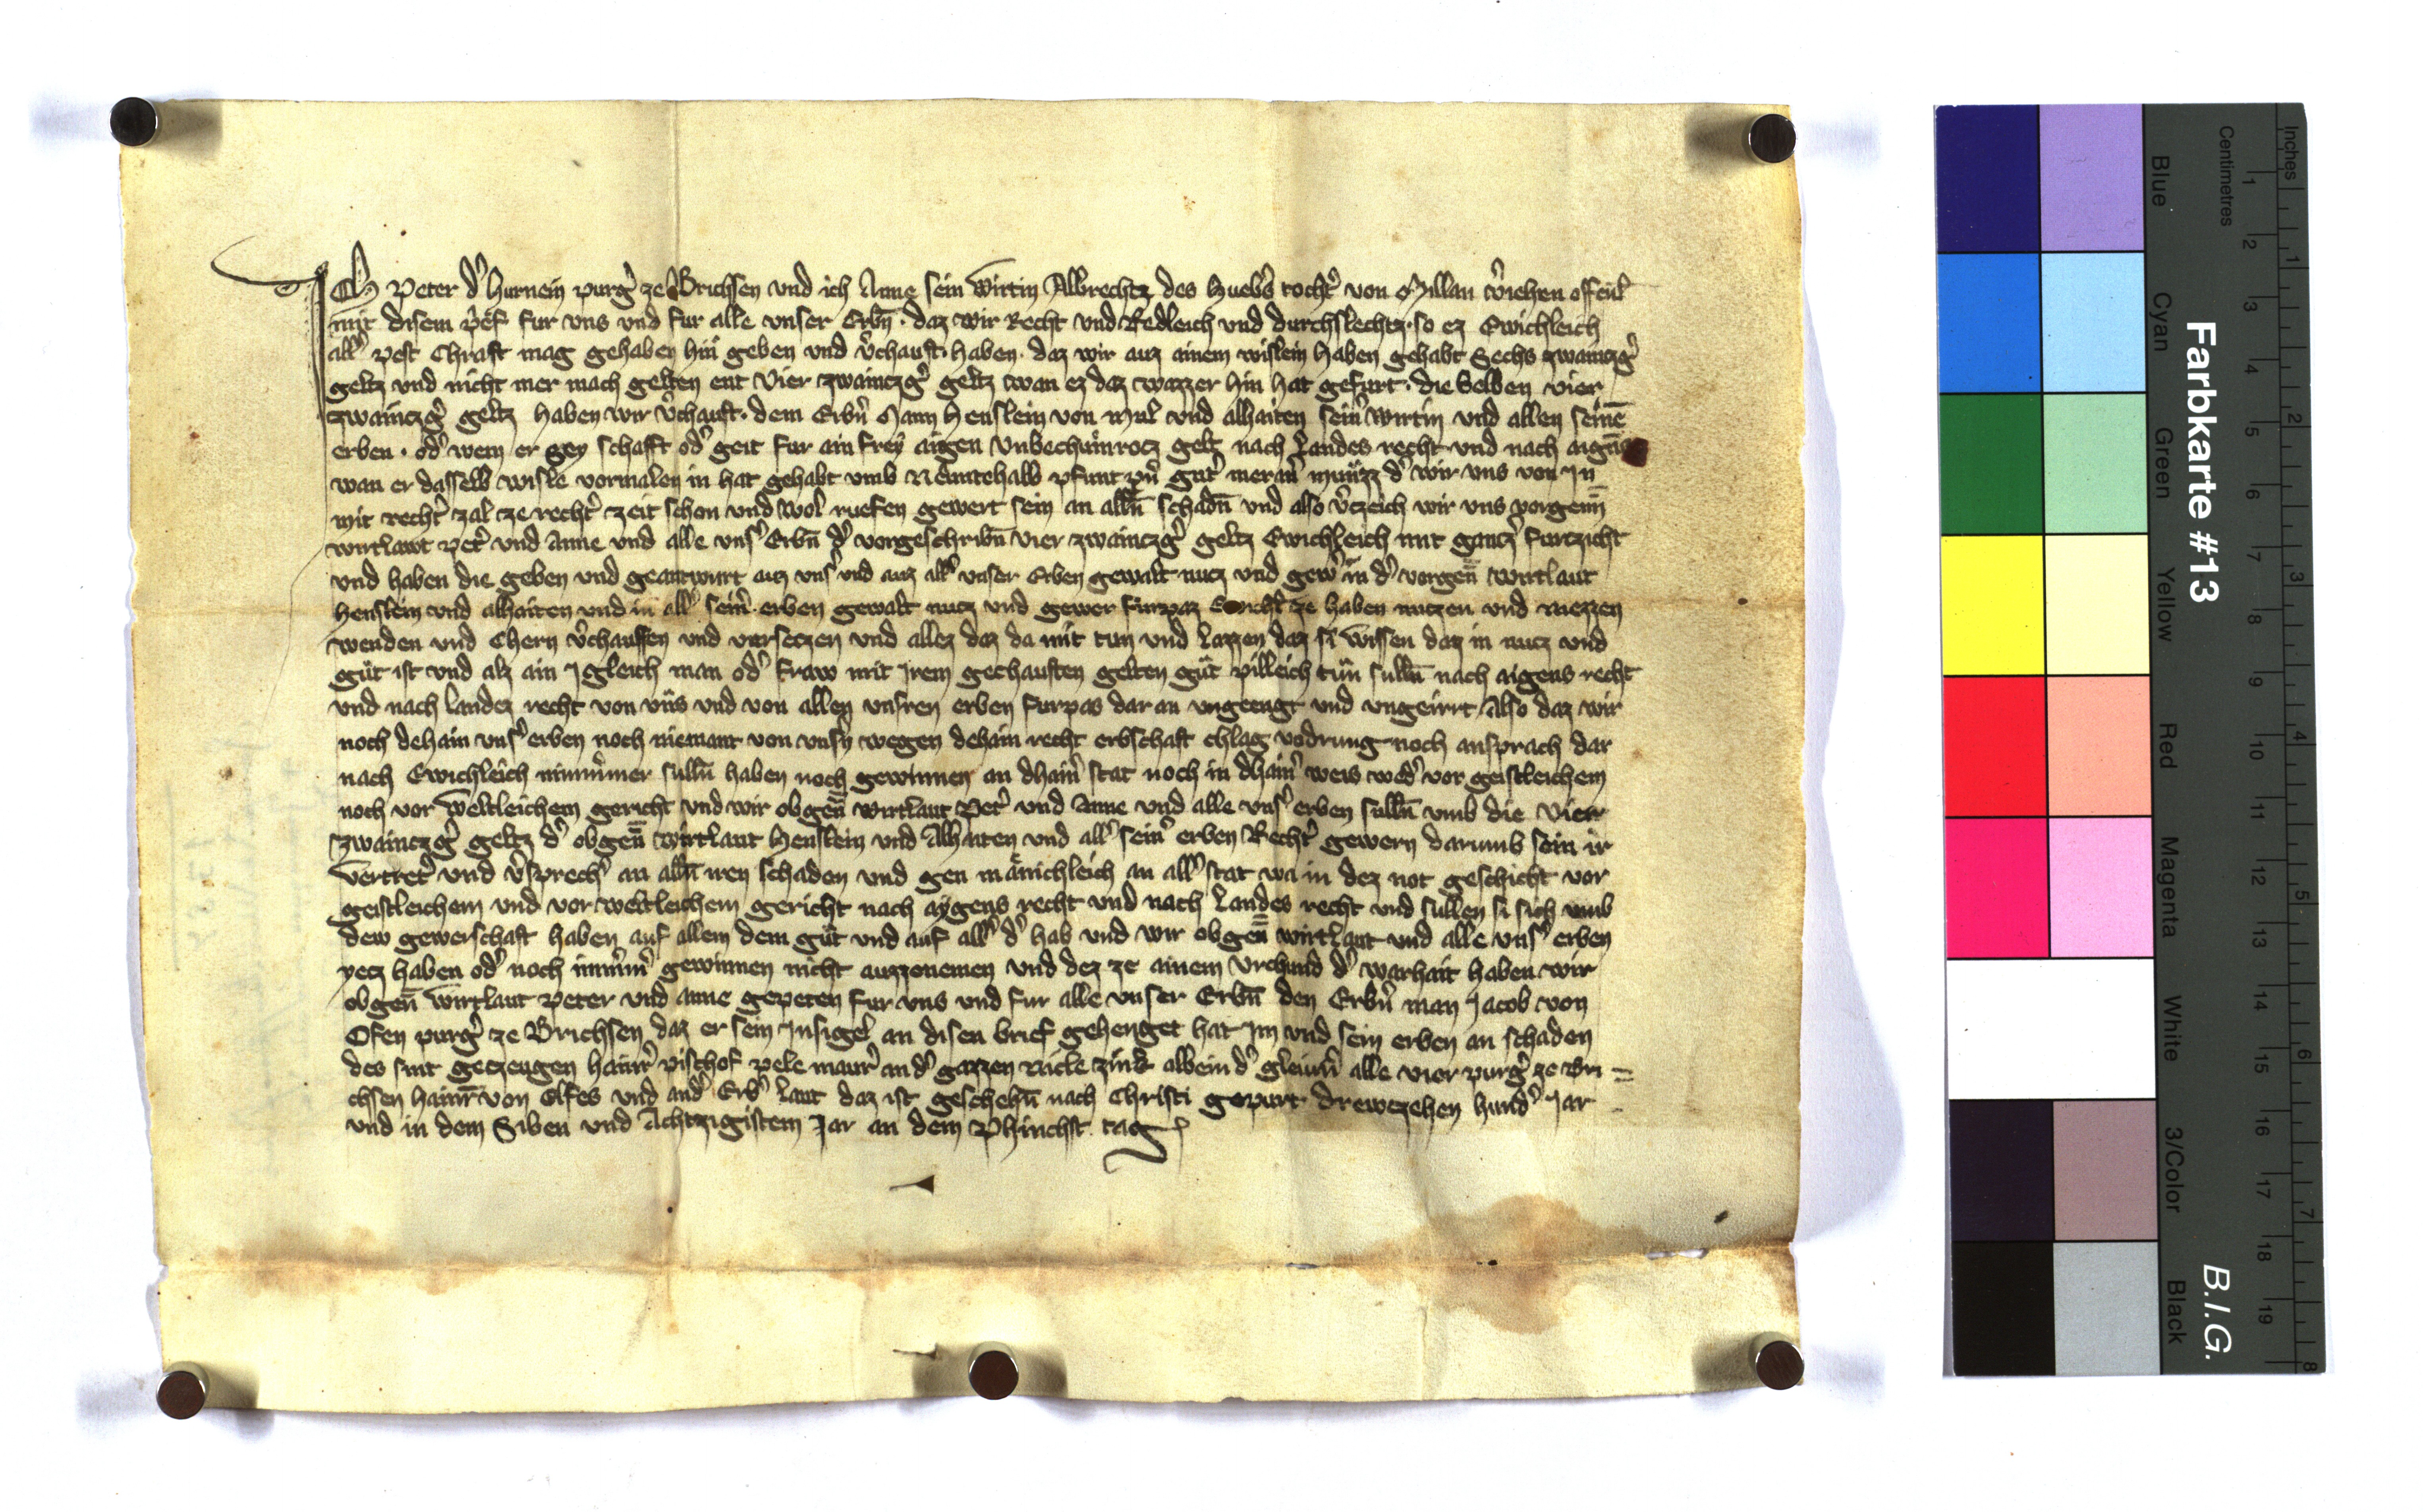 Ich Peter d' hurnein purg' ze Brichsen und ich Anne sein wirtin Albrechtz des Hueb's tocht' von Millan v'iehen offenl
mit disem prief fur uns und fur alle unser Erbn̄ · daz wir Recht und Redleich und durchslechtz · so ez Ewichleich
all' pest Chraft mag gehaben hin geben und v'chauft haben · daz wir auz ainem wislein haben gehabt Sechs zwainczg'
geltz und nicht mer mach gelten ent Vier zwainczg' geltz wan ez daz wazzer hin hat gefurt · die Selben vier
zwainczg' geltz haben wir v'chauft · dem Erbn̄ Mann Henslein von Mul und alhaiten sein' wirtin und allen seinē
erben · od' wem er Sey schafft od' geit fur ain frey aigen Unbechumrotz gelt nach Landes recht und nach aign̄s
wan er dasselb wisle vormalen in hat gehabt umb Neuntehalb pfunt pn̄ gut' meran' munzz d' wir uns von In
mit recht' zal ze recht' zeit schon und wol ruefen gewert sein an alln̄ schadn̄ und also v'czeich wir uns vorgenn̄
wirtlawt pet' und Anne und alle uns' Erbn̄ d' vorgeschribn̄ vier zwainczg' geltz Ewichleich mit gancz' furtzicht
und haben die geben und geantwurt auz uns' und auz all' unser Erben gewalt nucz und gew' in d' vorgen̄ wirtlaut
Henslein und alhaiten und in all' sein' erben gewalt nucz und gewer furpaz ze haben nutzen und niezzen
wenden und Chern v'chauffen und versetzen und allez daz da mit tun und lazzen daz si wissen daz in nucz und
gut ist und alz ain Igleich man od' fraw mit Irem gechauften gelten gut pilleich tun sulln̄ nach aigens recht
und nach landez recht von uns und von allen unsren erben furpas dar an ungeengt und ungeirrt Also daz wir
noch dehain uns' erben noch niemant von unsn̄ wegen dehain recht erbschaft chlag vodrung noch ansprach dar
nach Ewichleich nimm'mer sulln̄ haben noch gewinnen an dhain' stat noch in dhain' weis wed' vor geistleichem
noch vor weltleichem gericht und wir obgen̄ wirtlaut Pet' und Anne und alle uns' erben sulln̄ umb die Vier
zwainczg' geltz d' obgen̄ wirtlaut Henslein und Alhaiten und all' sein' erben Recht' gewern darumb sein ir
vertret' und v'sprech' an alln̄ iren schaden und gen mänichleich an all' stat wa in dez not geschicht vor
geistleichem und vor weltleichem gericht nach aygens recht und nach Landes recht und sullen si sich umb
dew gewerschaft haben auf allem dem gut und auf all' d' hab und wir obgen̄ wirtlaut und alle uns' erben
yecz haben od' noch imm'm' gewinnen nicht auzzenemen und dez ze ainem Urchund d' warhait haben wir
obgen̄ wirtlaut Peter und anne gepeten fur uns und fur alle unser Erbn̄ den Erbn̄ man Jacob von
Ofen purg' ze Brichsen daz er sein Insigel an disen brief gehenget hat Im und sein erben an schaden
des sint geczeugen hainr' pischof pele maur' an d' gazzen Nicle zink albein d' gleim' alle vier purg' ze Bri =
chsen Hainr̄ von Elfes und and' Erb' laut daz ist geschehn̄ nach Christi gepurt drewczehen hund' Jar
und in dem Siben und Achtzigistem Jar an dem Phinchst tag
Farbkarte #13
B.I.G.
Inches
Centimetres
Blue
Cyan
Green
Yellow
Red
Magenta
White
3/Color
Black
1 2 3 4 5 6 7 8 9 10 11 12 13 14 15 16 17 18 19
1 2 3 4 5 6 7 8